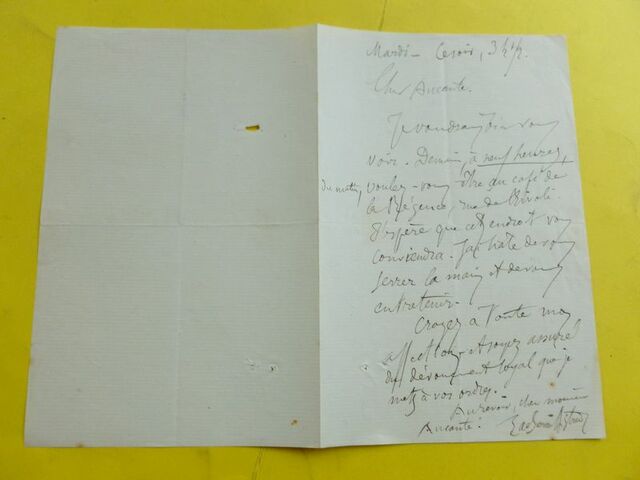 Mardi - Ce soir, 3 h 1/2.
Cher Aucante.
Je voudrais bien vous
voir. Demain, à neuf heures,
du matin, voulez-vous être au café de
la Régence, rue de Rivoli.
J'espère que cet endroit vous
conviendra. J'ai hâte de vous
serrer la main et de vous
entretenir.
Croyez à toute mon
affection et soyez assuré
du dévouement loyal que je
mets à vos ordres.
Au revoir, cher monsieur
Aucante!